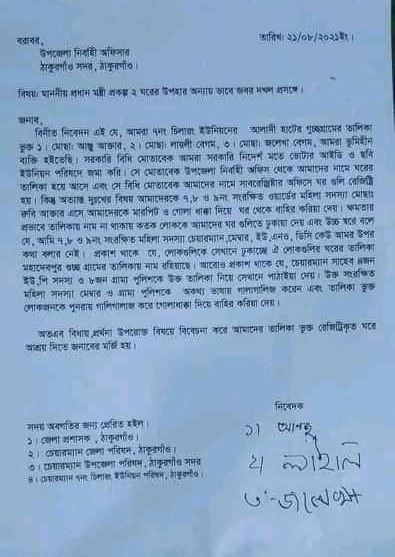 বরাবর,
তারিখ: ২১/০৮/২০২১ইং।
উপজেলা নির্বাহী অফিসার
ঠাকুরগাঁও সদর, ঠাকুরগাঁও।
বিষয়: মাননীয় প্রধান মন্ত্রী প্রকল্প ২ ঘরের উপহার অন্যায় ভাবে জবর দখল প্রসঙ্গে।
জনাব,
বিনীত নিবেদন এই যে, আমরা ৭নং চিলারং ইউনিয়নের আলাদী হাটের গুচ্ছগ্রামের তালিকা
ভুক্ত ১। মোছা: আঞ্জু আক্তার, ২। মোছা: লায়লী বেগম, ৩। মোছা: জলেখা বেগম, আমরা ভূমিহীন
ব্যক্তি হইতেছি। সরকারি বিধি মোতাবেক আমরা সরকারি নির্দেশ মতে ভোটার আইডি ও ছবি
ইউনিয়ন পরিষদে জমা করি। সে মোতাবেক উপজেলা নির্বাহী অফিস থেকে আমাদের নামে ঘরের
তালিকা হয়ে আসে এবং সে বিধি মোতাবেক আমাদের নামে সাবরেজিষ্ট্রার অফিসে ঘর গুলি রেজিষ্ট্রি
হয়। কিন্তু অত্যন্ত দুঃখের বিষয় আমাদেরকে ৭,৮ ও ৯নং সংরক্ষিত ওয়ার্ডের মহিলা সদস্যা মোছাঃ
রুবি আক্তার এসে আমাদেরকে মারপিট ও গোলা ধাক্কা দিয়ে ঘর থেকে বাহির করিয়া দেয়। ক্ষমতার
প্রভাবে তালিকায় নাম না থাকায় কতক লোককে আমাদের ঘর গুলিতে ঢুকায়া দেয় এবং উচ্চ স্বরে বলে
যে, আমি ৭,৮ ও ৯নং সংরক্ষিত মহিলা সদস্যা চেয়ারম্যান,মেম্বার, ইউ,এনও, ডিসি কেউ আমর উপর
কথা বলার নেই। প্রকাশ থাকে যে, লোকগুলিকে সেখানে ঢুকাচ্ছে ঐ লোকগুলির ঘরের তালিকা
মহাদেবপুর গুচ্ছ গ্রামের তালিকায় নাম রহিয়াছে। আরোও প্রকাশ থাকে যে, চেয়ারম্যান সাহেব ৪জন
ইউ,পি সদস্য ও ৮জন গ্রামা পুলিশকে উক্ত তালিকা নিয়ে সেখানে পাঠাইয়া দেয়। উক্ত সংরক্ষিত
মহিলা সদস্যা মেম্বার ও গ্রামা পুলিশকে অকথ্য ভাষায় গালাগালিজ করেন এবং তালিকা ভুক্ত
লোকজনকে পুনরায় গালিগালাজ করে গোলাধাক্কা দিয়ে বাহির করিয়া দেয়।
অতএব বিধায় প্রর্থনা উপরোক্ত বিষয়ে বিবেচনা করে আমাদের তালিকা ভুক্ত রেজিট্রিকৃত ঘরে
আশ্রয় দিতে জনাবের মর্জি হয়।
নিবেদক
সদয় অবগতির জন্য প্রেরিত হইল।
১। জেলা প্রশাসক , ঠাকুরগাঁও।
২। চেয়ারম্যান জেলা পরিষদ, ঠাকুরগাঁও।
৩। চেয়ারম্যান উপজেলা পরিষদ, ঠাকুরগাঁও সদর
৪। চেয়ারম্যান ৭নং চিলারং ইউনিয়ন পরিষদ, ঠাকুরগাঁও।
১।
২।
৩। জলেখা